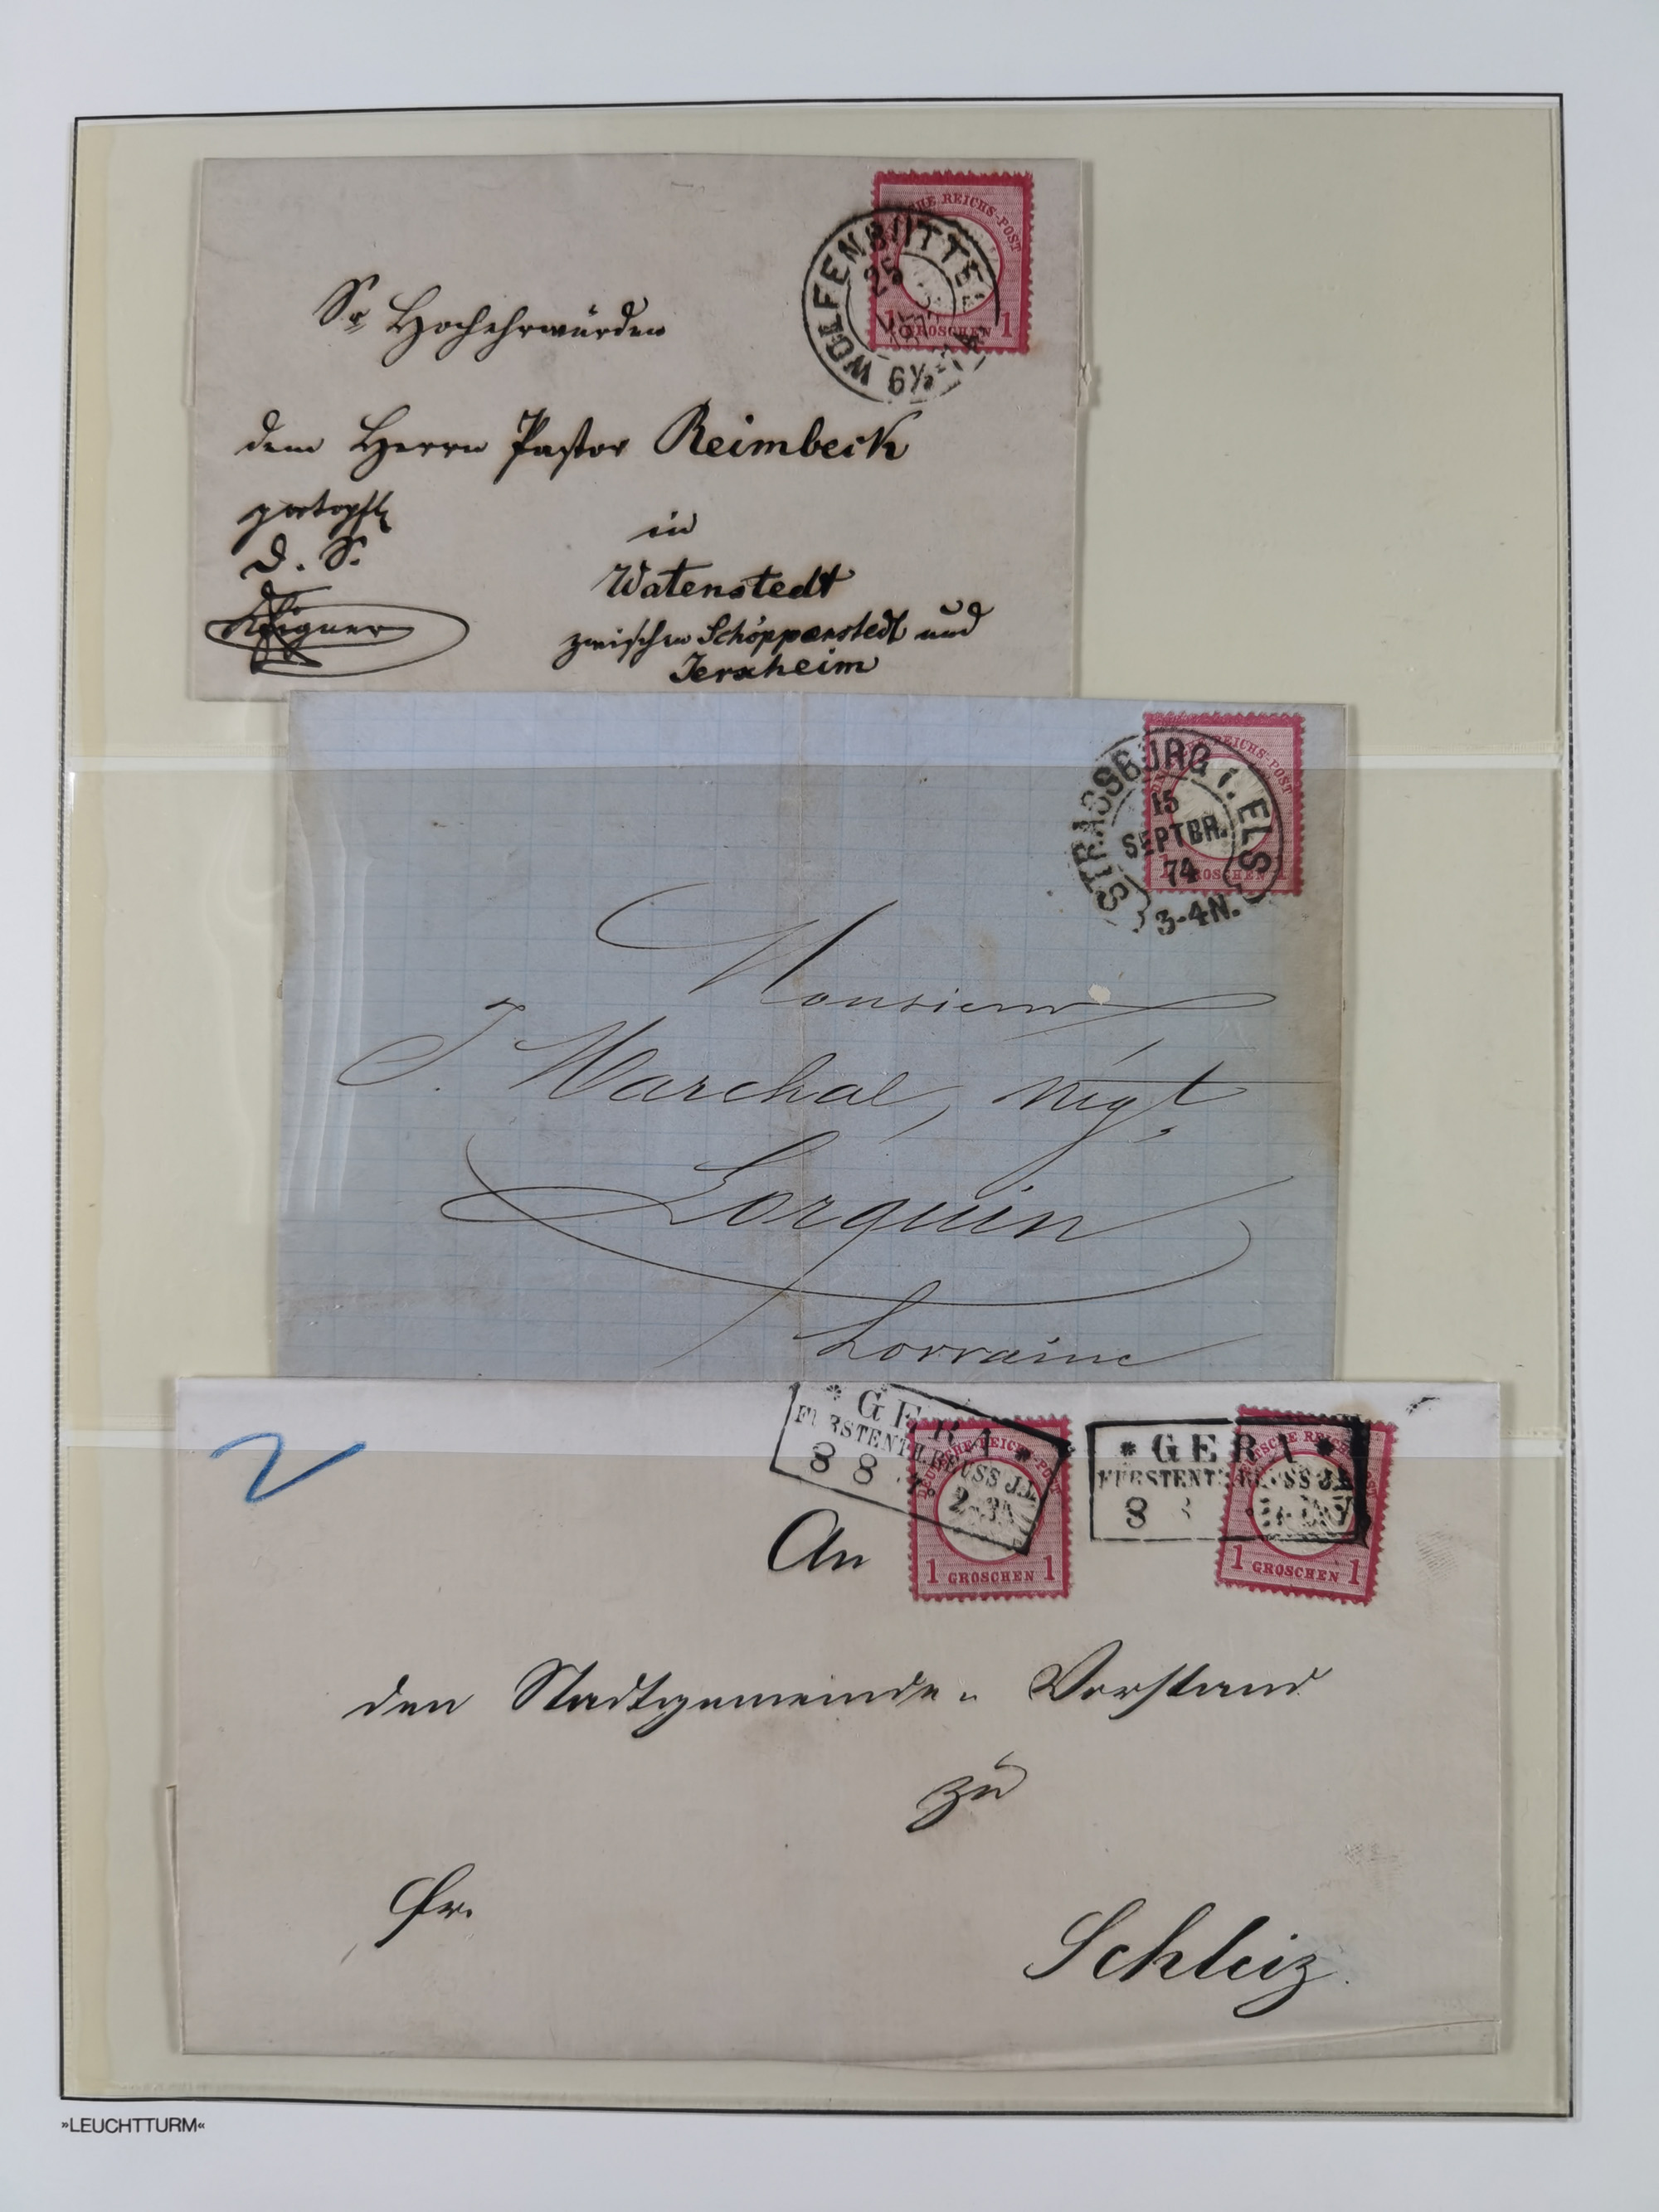 REICHS-POST
WOLFENBÜTTEL
25
6½
1 GROSCHEN 1
Sr Hochehrwürden
dem Herrn Pastor Reimbeck
in
D. S.
Watenstedt
zwischen Schöppenstedt und
Jerxheim
REICHS-POST
STRASSBURG I. ELS
15
SEPTBR.
74
3-4N.
GROSCHEN
Monsieur
J. Marchal, négt.
Lorquin
Lorraine
2
* GERA *
FÜRSTENTH.REUSS J.L.
8 8
DEUTSCHE REICHS-POST
1 GROSCHEN 1
* GERA *
FÜRSTENTH.REUSS J.L.
8 8
DEUTSCHE REICHS-POST
1 GROSCHEN 1
An
den Stadtgemeinde-Vorstand
zu
Fr.
Schleiz.
»LEUCHTTURM«